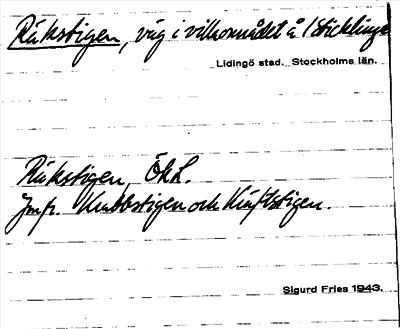 Räkstigen, väg i villaområdet å /Sticklinge
Lidingö stad. Stockholms län.
Räkstigen, ÖkL.
Jmfr. Krabbstigen och Kräftstigen.
Sigurd Fries 1943.